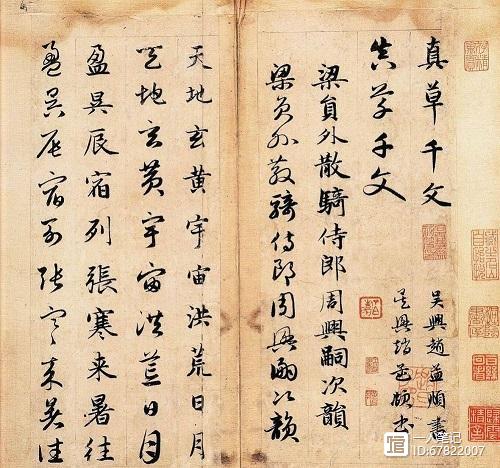 真草千文
吴興趙孟頫書
真草千文
吴興趙孟頫書
梁員外散騎侍郎周興嗣次韻
梁員外散騎侍郎周興嗣次韻
天地玄黄宇宙洪荒日月
天地玄黄宇宙洪荒日月
盈昃辰宿列張寒来暑往
盈昃辰宿列張寒来暑往
笔记
ID:67822007